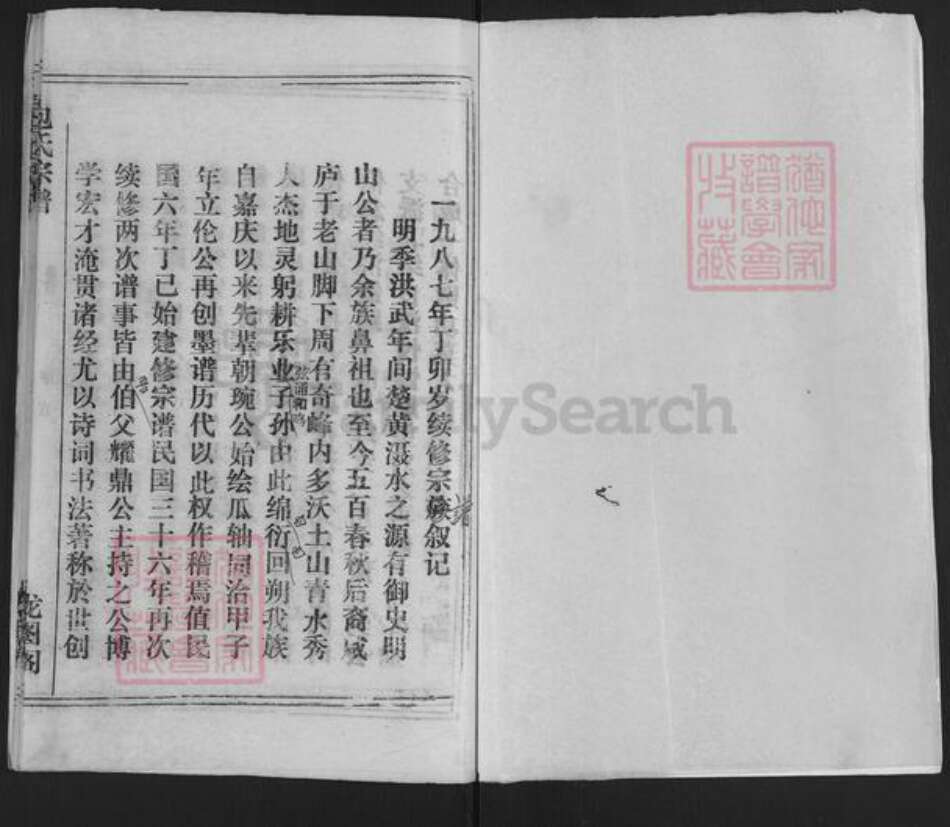 一九八七年丁卯岁续修宗族叙记
谱
明季洪武年间楚黄滠水之源有御史明
山公者乃余族鼻祖也至今五百春秋后裔咸
庐于老山脚下周有奇峰内多沃土山青水秀
人杰地灵躬耕乐业子孙由此绵衍回朔我族
弦诵和鸣
自嘉庆以来先辈朝琬公始绘瓜轴同治甲子
年立伦公再创墨谱历代以此权作稽焉值民
国六年丁巳始建修宗谱民国三十六年再次
续修两次谱事皆由伯父耀鼎公主持之公博
学宏才淹贯诸经尤以诗词书法著称於世创
包氏宗谱
龙图阁
FamilySearch